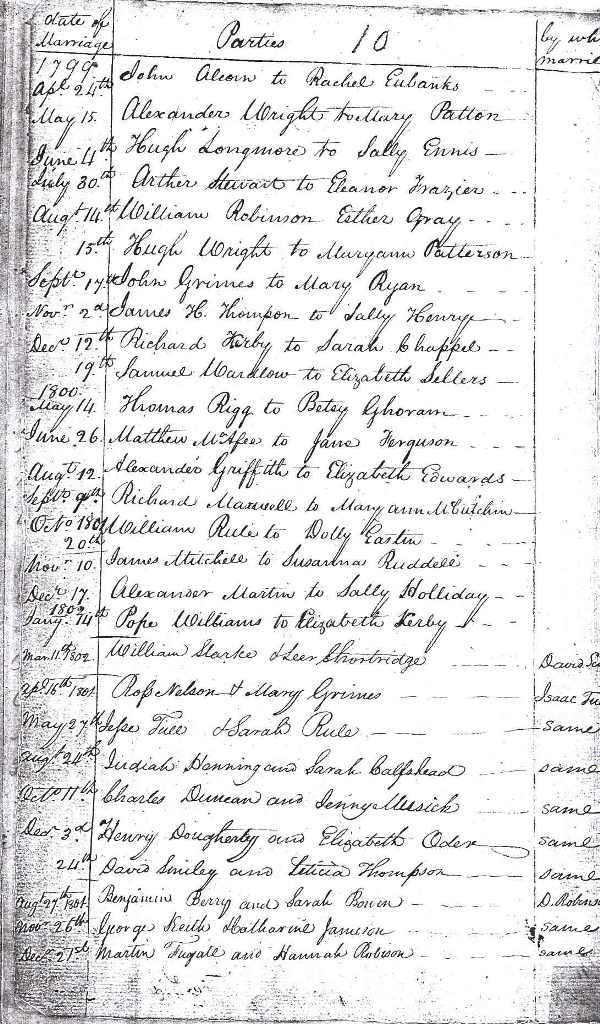 date of Marriage Parties 10 by married
1799
Apl. 24th John Alcorn to Rachel Eubanks
May 15. Alexander Wright to Mary Patton
June 4th Hugh Longmore to Sally Ennis
July 30th Arther Stewart to Eleanor Frazier
Augt. 14th William Robinson Esther Gray
15th Hugh Wright to Maryann Patterson
Septr. 17th John Grimes to Mary Ryan
Novr. 2d James H. Thompson to Sally Henry
Decr. 12th Richard Kirby to Sarah Chappel
19th Samuel Wardlow to Elizabeth Sellers
1800.
May 14. Thomas Rigg to Betsy Ghoram
June 26. Matthew McAfee to Jane Ferguson
Augt. 12. Alexander Griffith to Elizabeth Edwards
Septr. 9th Richard Maxwell to Maryann
Octo 1801 William Rule to Dolly Eastin
20th
Novr. 10. James Mitchell to Susanna Ruddell
Decr. 17. Alexander Martin to Sally Holliday
1802
Jany. 14th Pope Williams to Elizabeth Kerby
Mar. 11th 1802. William Starke & Shortridge David
Apl. 16th 1801. Ross Nelson & Mary Grimes Isaac
May 27th Jesse Tull & Sarah Rule same
Augt. 24th Judiah Henning and Sarah Calfshead same
Octo. 11th Charles Duncan and Jenny Messick same
Decr. 3d Henry Dougherty and Elizabeth Oder same
24th David Smiley and Leticia Thompson same
Augt. 27th 1801. Benjamin Berry and Sarah Bowen D.
Novr. 26th George Keith & Catharine Jameson same
Decr. 21st Martin Fugate and Hannah Robison same